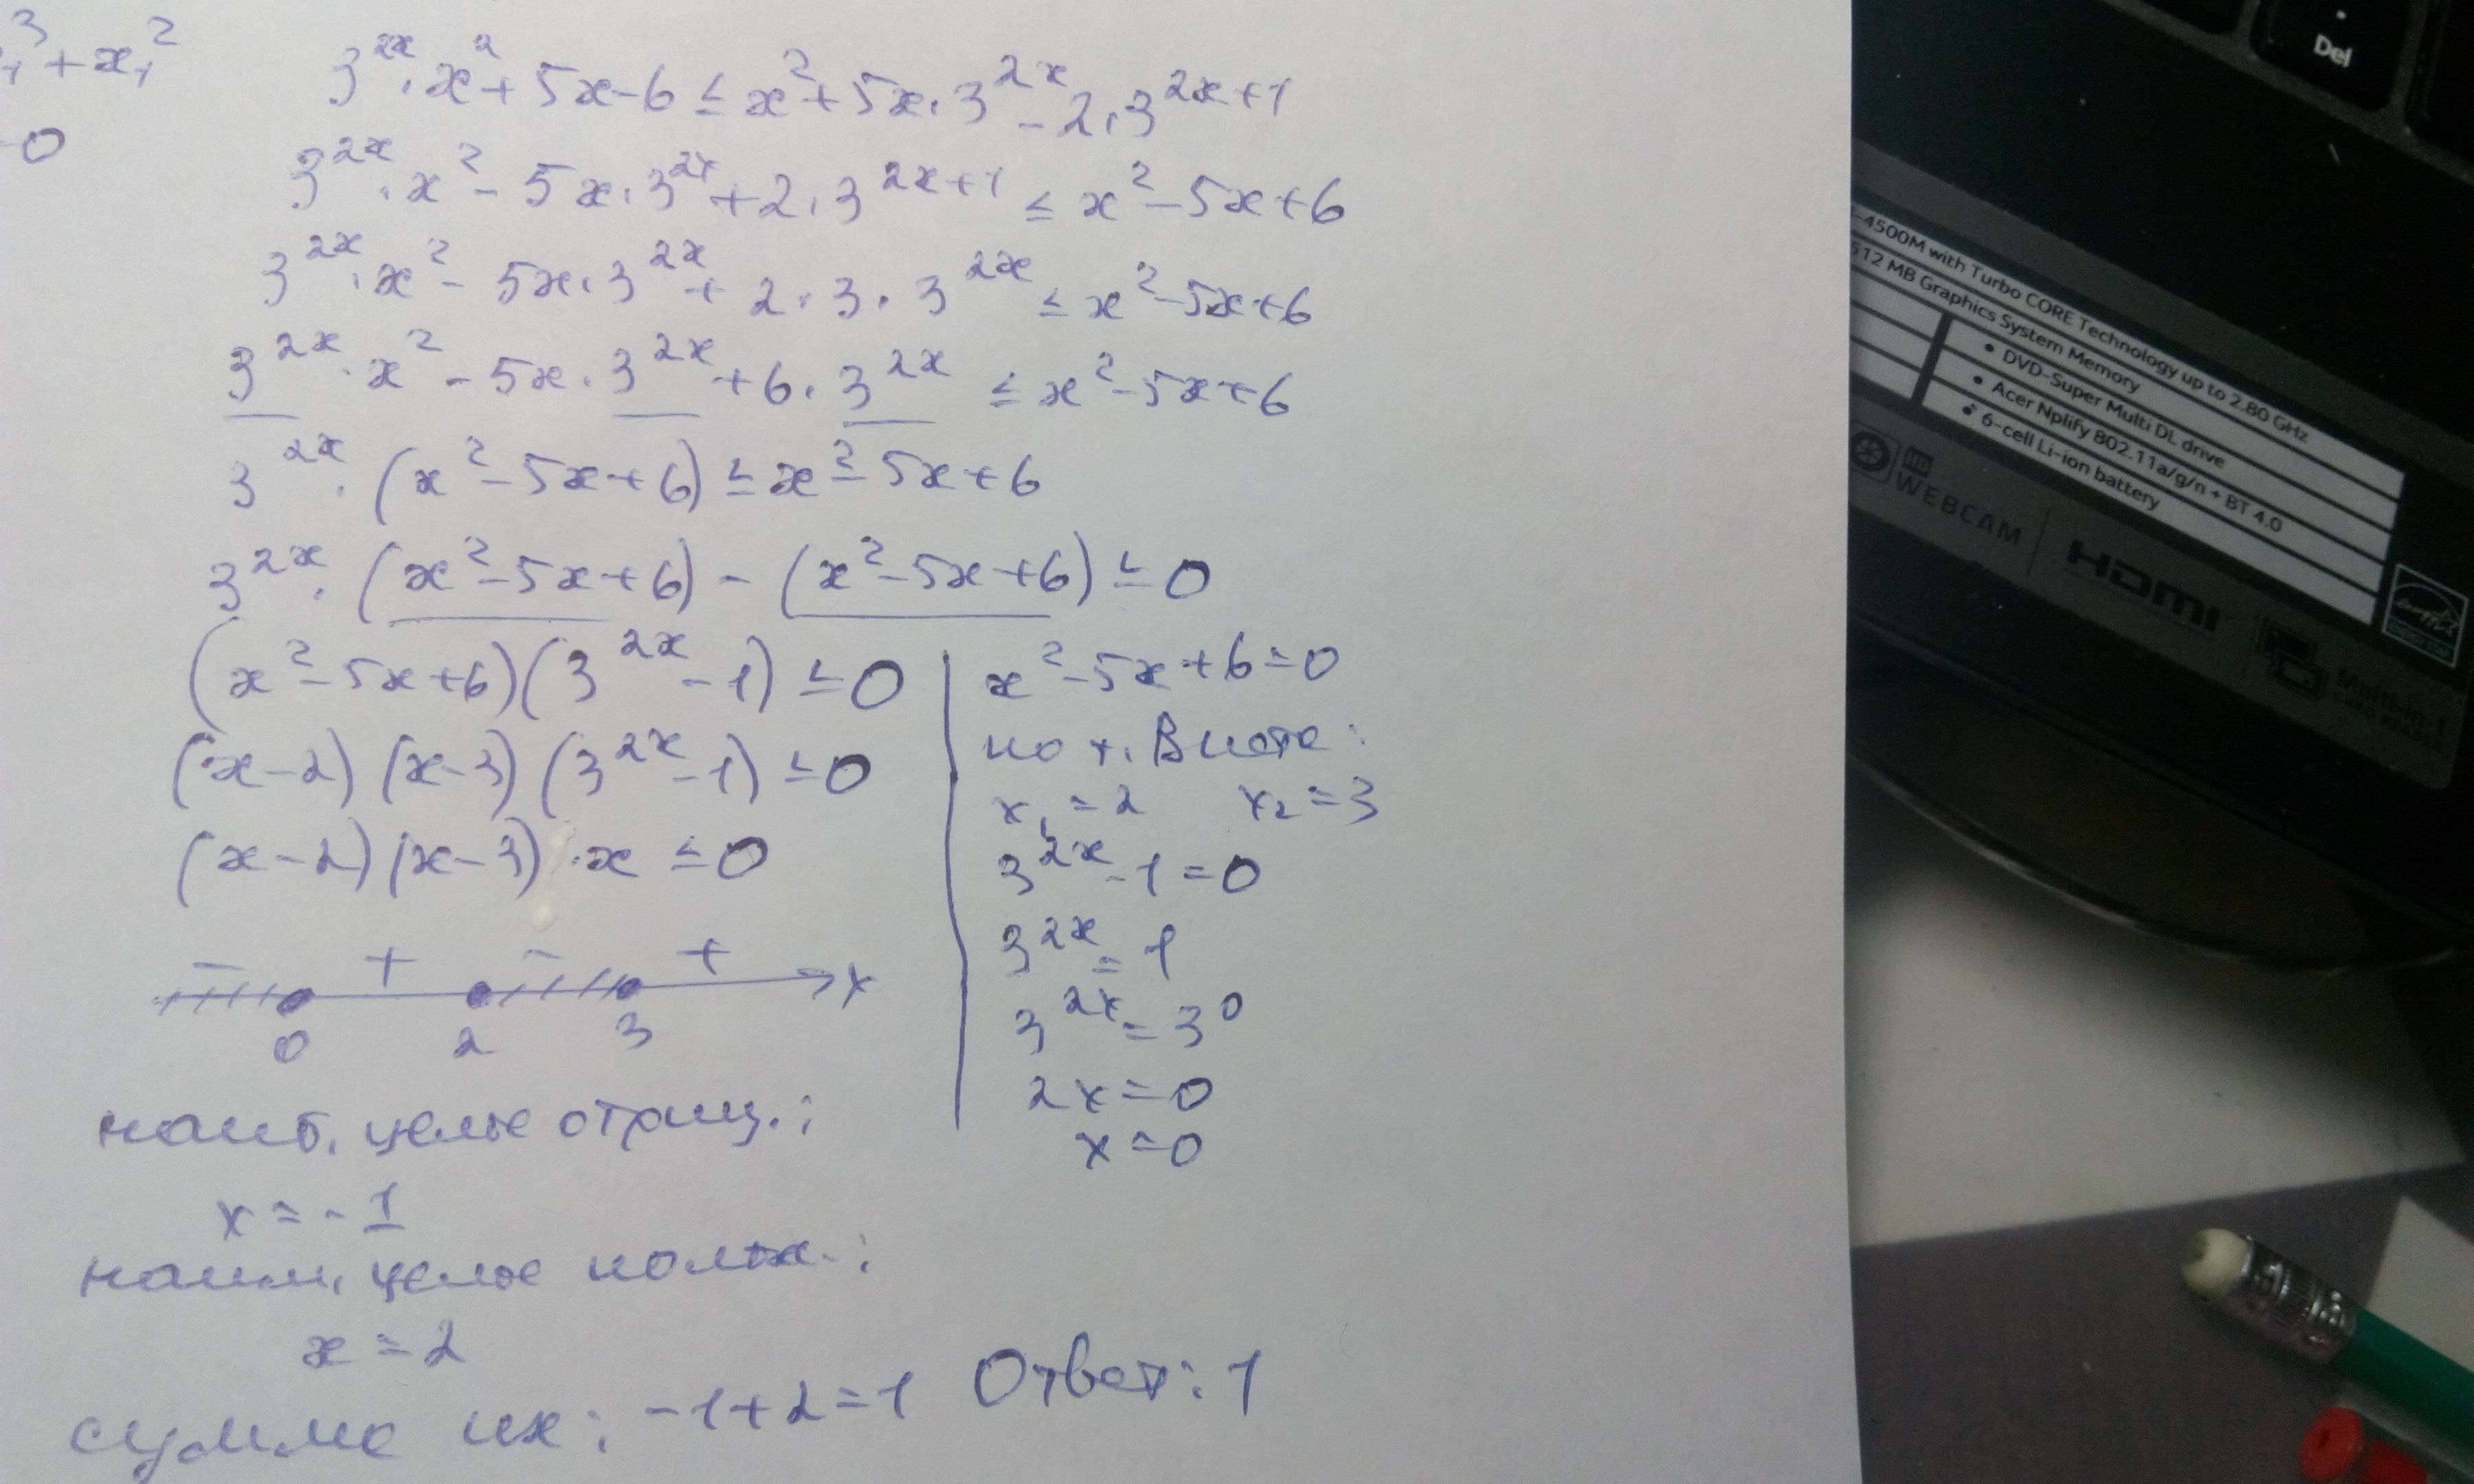 + x₁²
3^{2x}·x² + 5x - 6 ≤ x² + 5x·3^{2x} - 2·3^{2x+1}
3^{2x}·x² - 5x·3^{2x} + 2·3^{2x+1} ≤ x² - 5x + 6
3^{2x}·x² - 5x·3^{2x} + 2·3·3^{2x} ≤ x² - 5x + 6
3^{2x}·x² - 5x·3^{2x} + 6·3^{2x} ≤ x² - 5x + 6
3^{2x}·(x² - 5x + 6) ≤ x² - 5x + 6
3^{2x}·(x² - 5x + 6) - (x² - 5x + 6) ≤ 0
(x² - 5x + 6)(3^{2x} - 1) ≤ 0
(x - 2)(x - 3)(3^{2x} - 1) ≤ 0
(x - 2)(x - 3)·x ≤ 0
- + - + x
0 2 3
x² - 5x + 6 = 0
по т. Виета:
x₁ = 2 x₂ = 3
3^{2x} - 1 = 0
3^{2x} = 1
3^{2x} = 3⁰
2x = 0
x = 0
наиб. целое отриц.:
x = -1
наим. целое полож.:
x = 2
сумма их: -1+2=1 Ответ: 1
Del
-4500M with Turbo CORE Technology up to 2.80 GHz
512 MB Graphics System Memory
• DVD-Super Multi DL drive
• Acer Nplify 802.11a/g/n + BT 4.0
• 6-cell Li-ion battery
HD
WEBCAM
HDMI
Multi-in-1